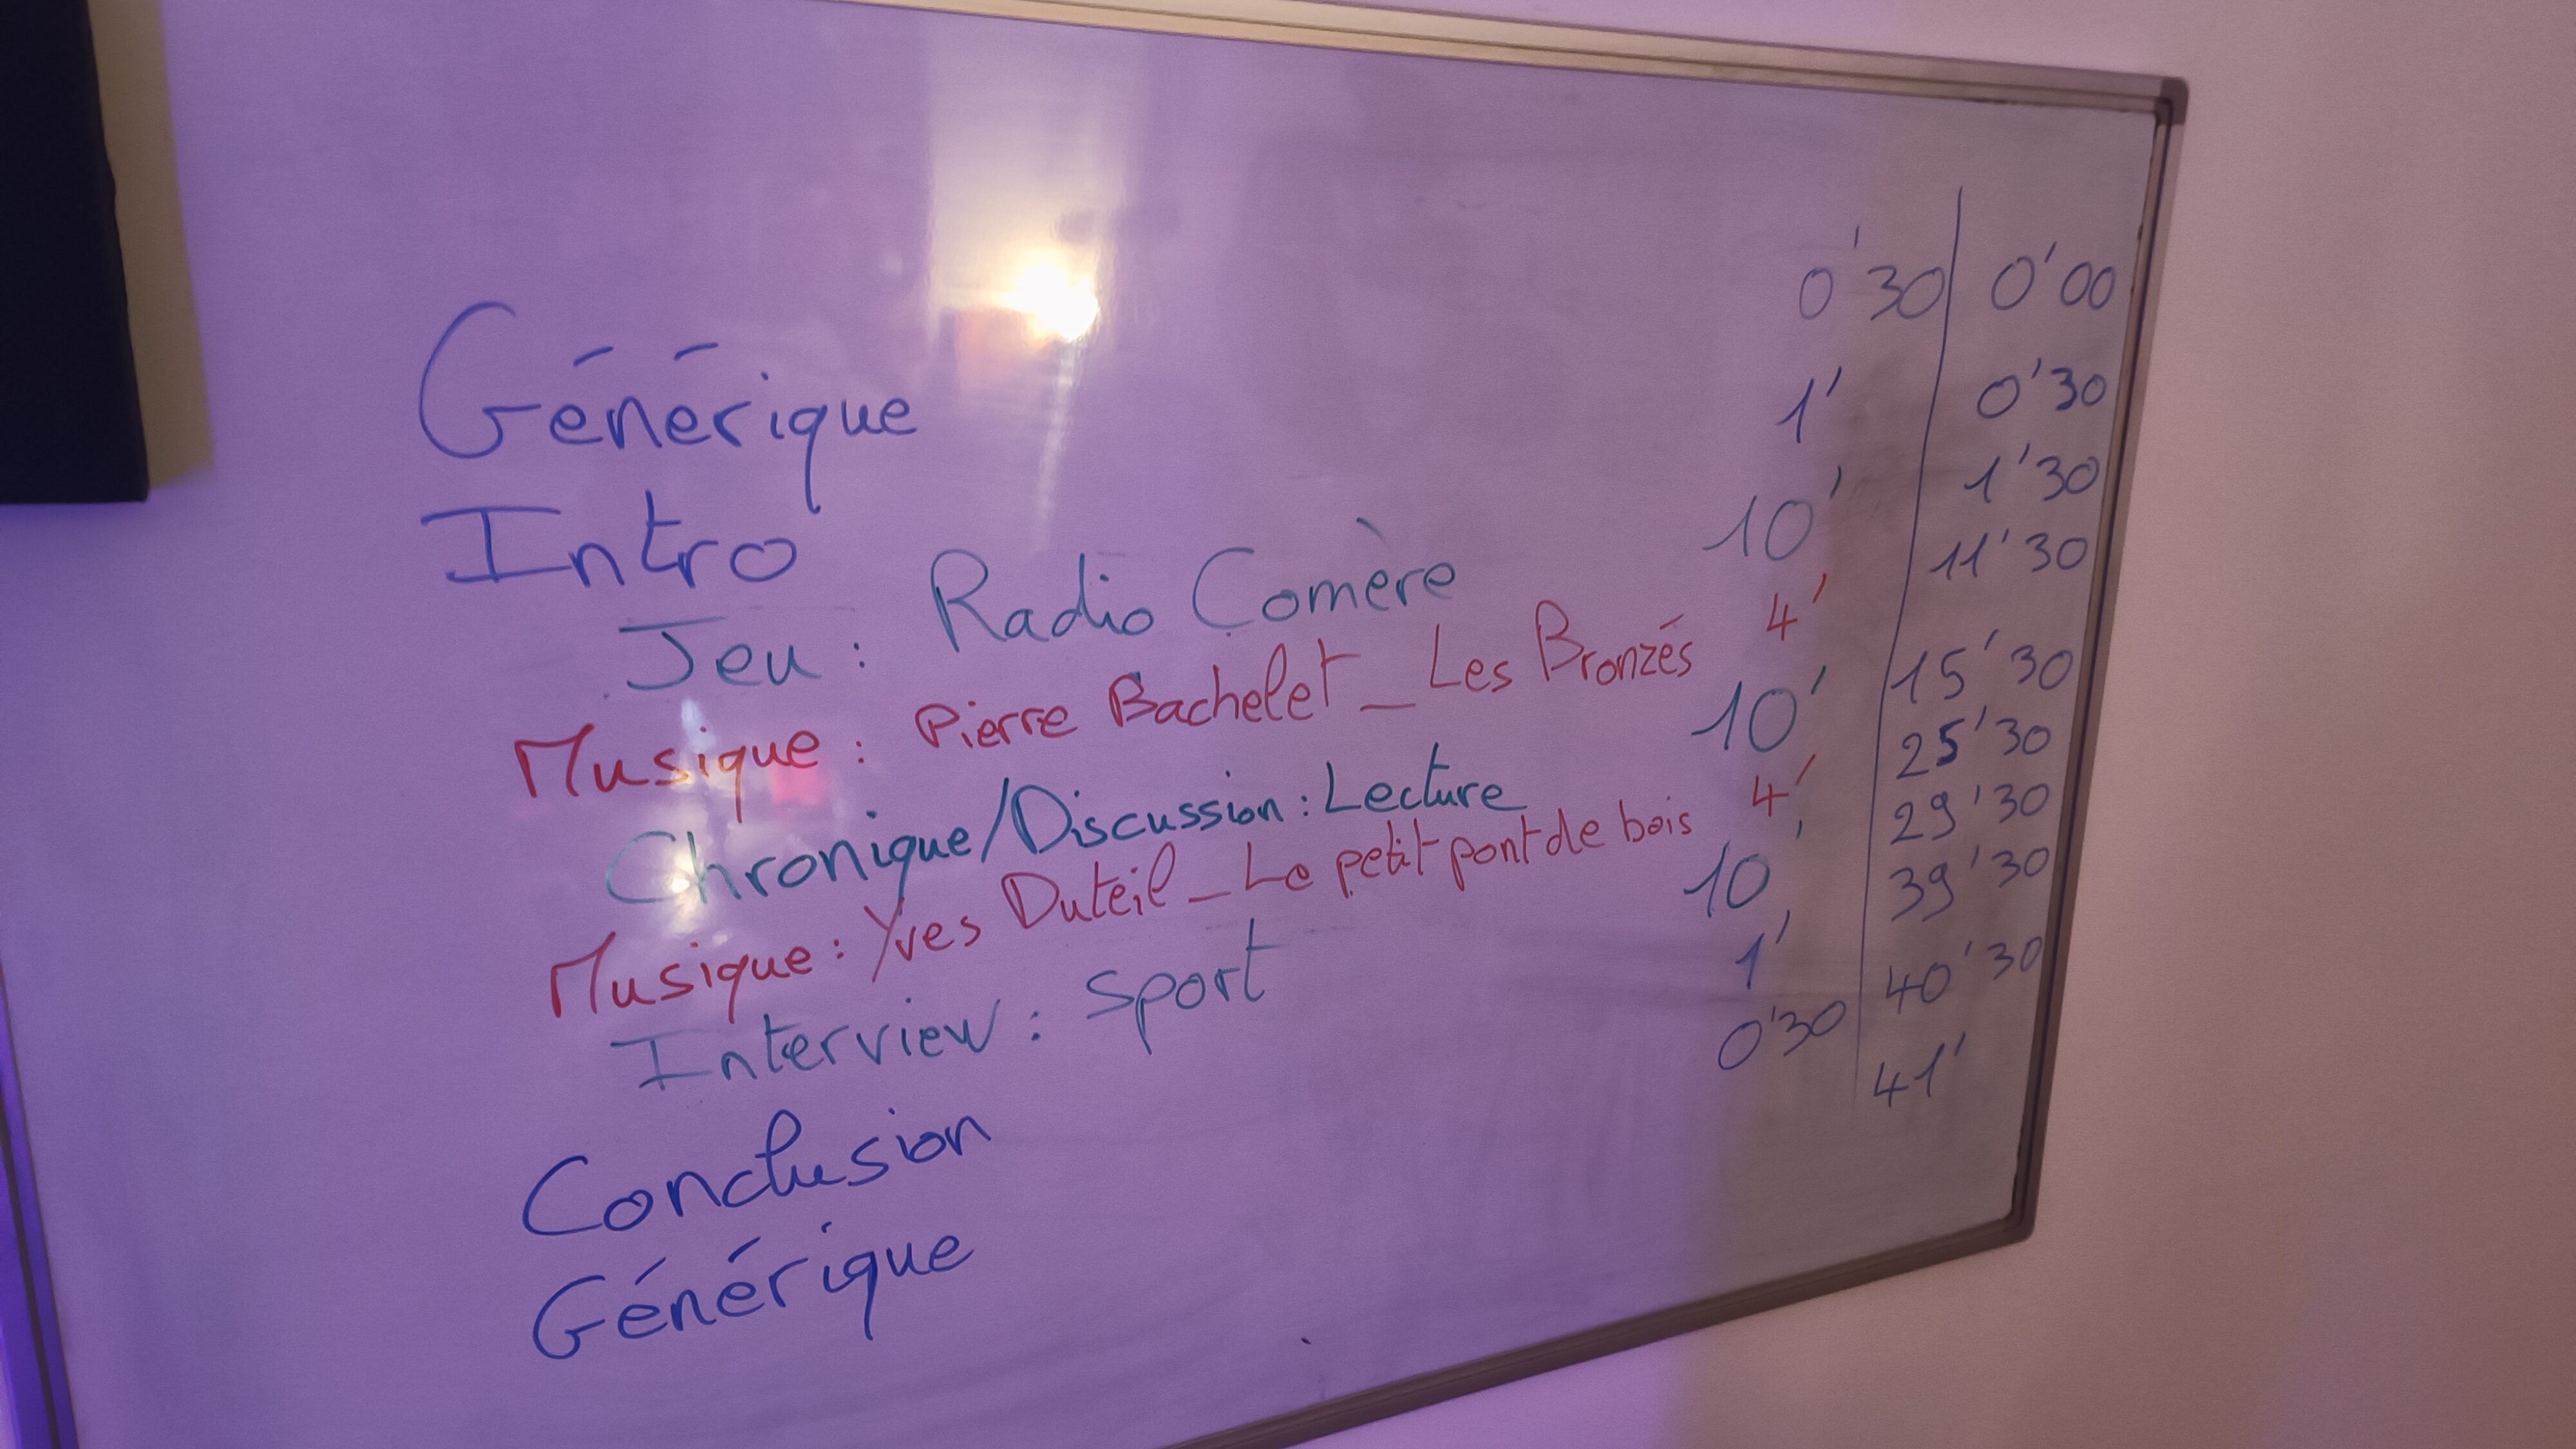 Générique 0'30 0'00
Intro 1' 0'30
Jeu : Radio Comère 10' 1'30
Musique : Pierre Bachelet _ Les Bronzés 4' 11'30
Chronique/Discussion : Lecture 10' 15'30
Musique : Yves Duteil _ Le petit pont de bois 4' 25'30
Interview : Sport 10' 29'30
Conclusion 1' 39'30
Générique 0'30 40'30
41'